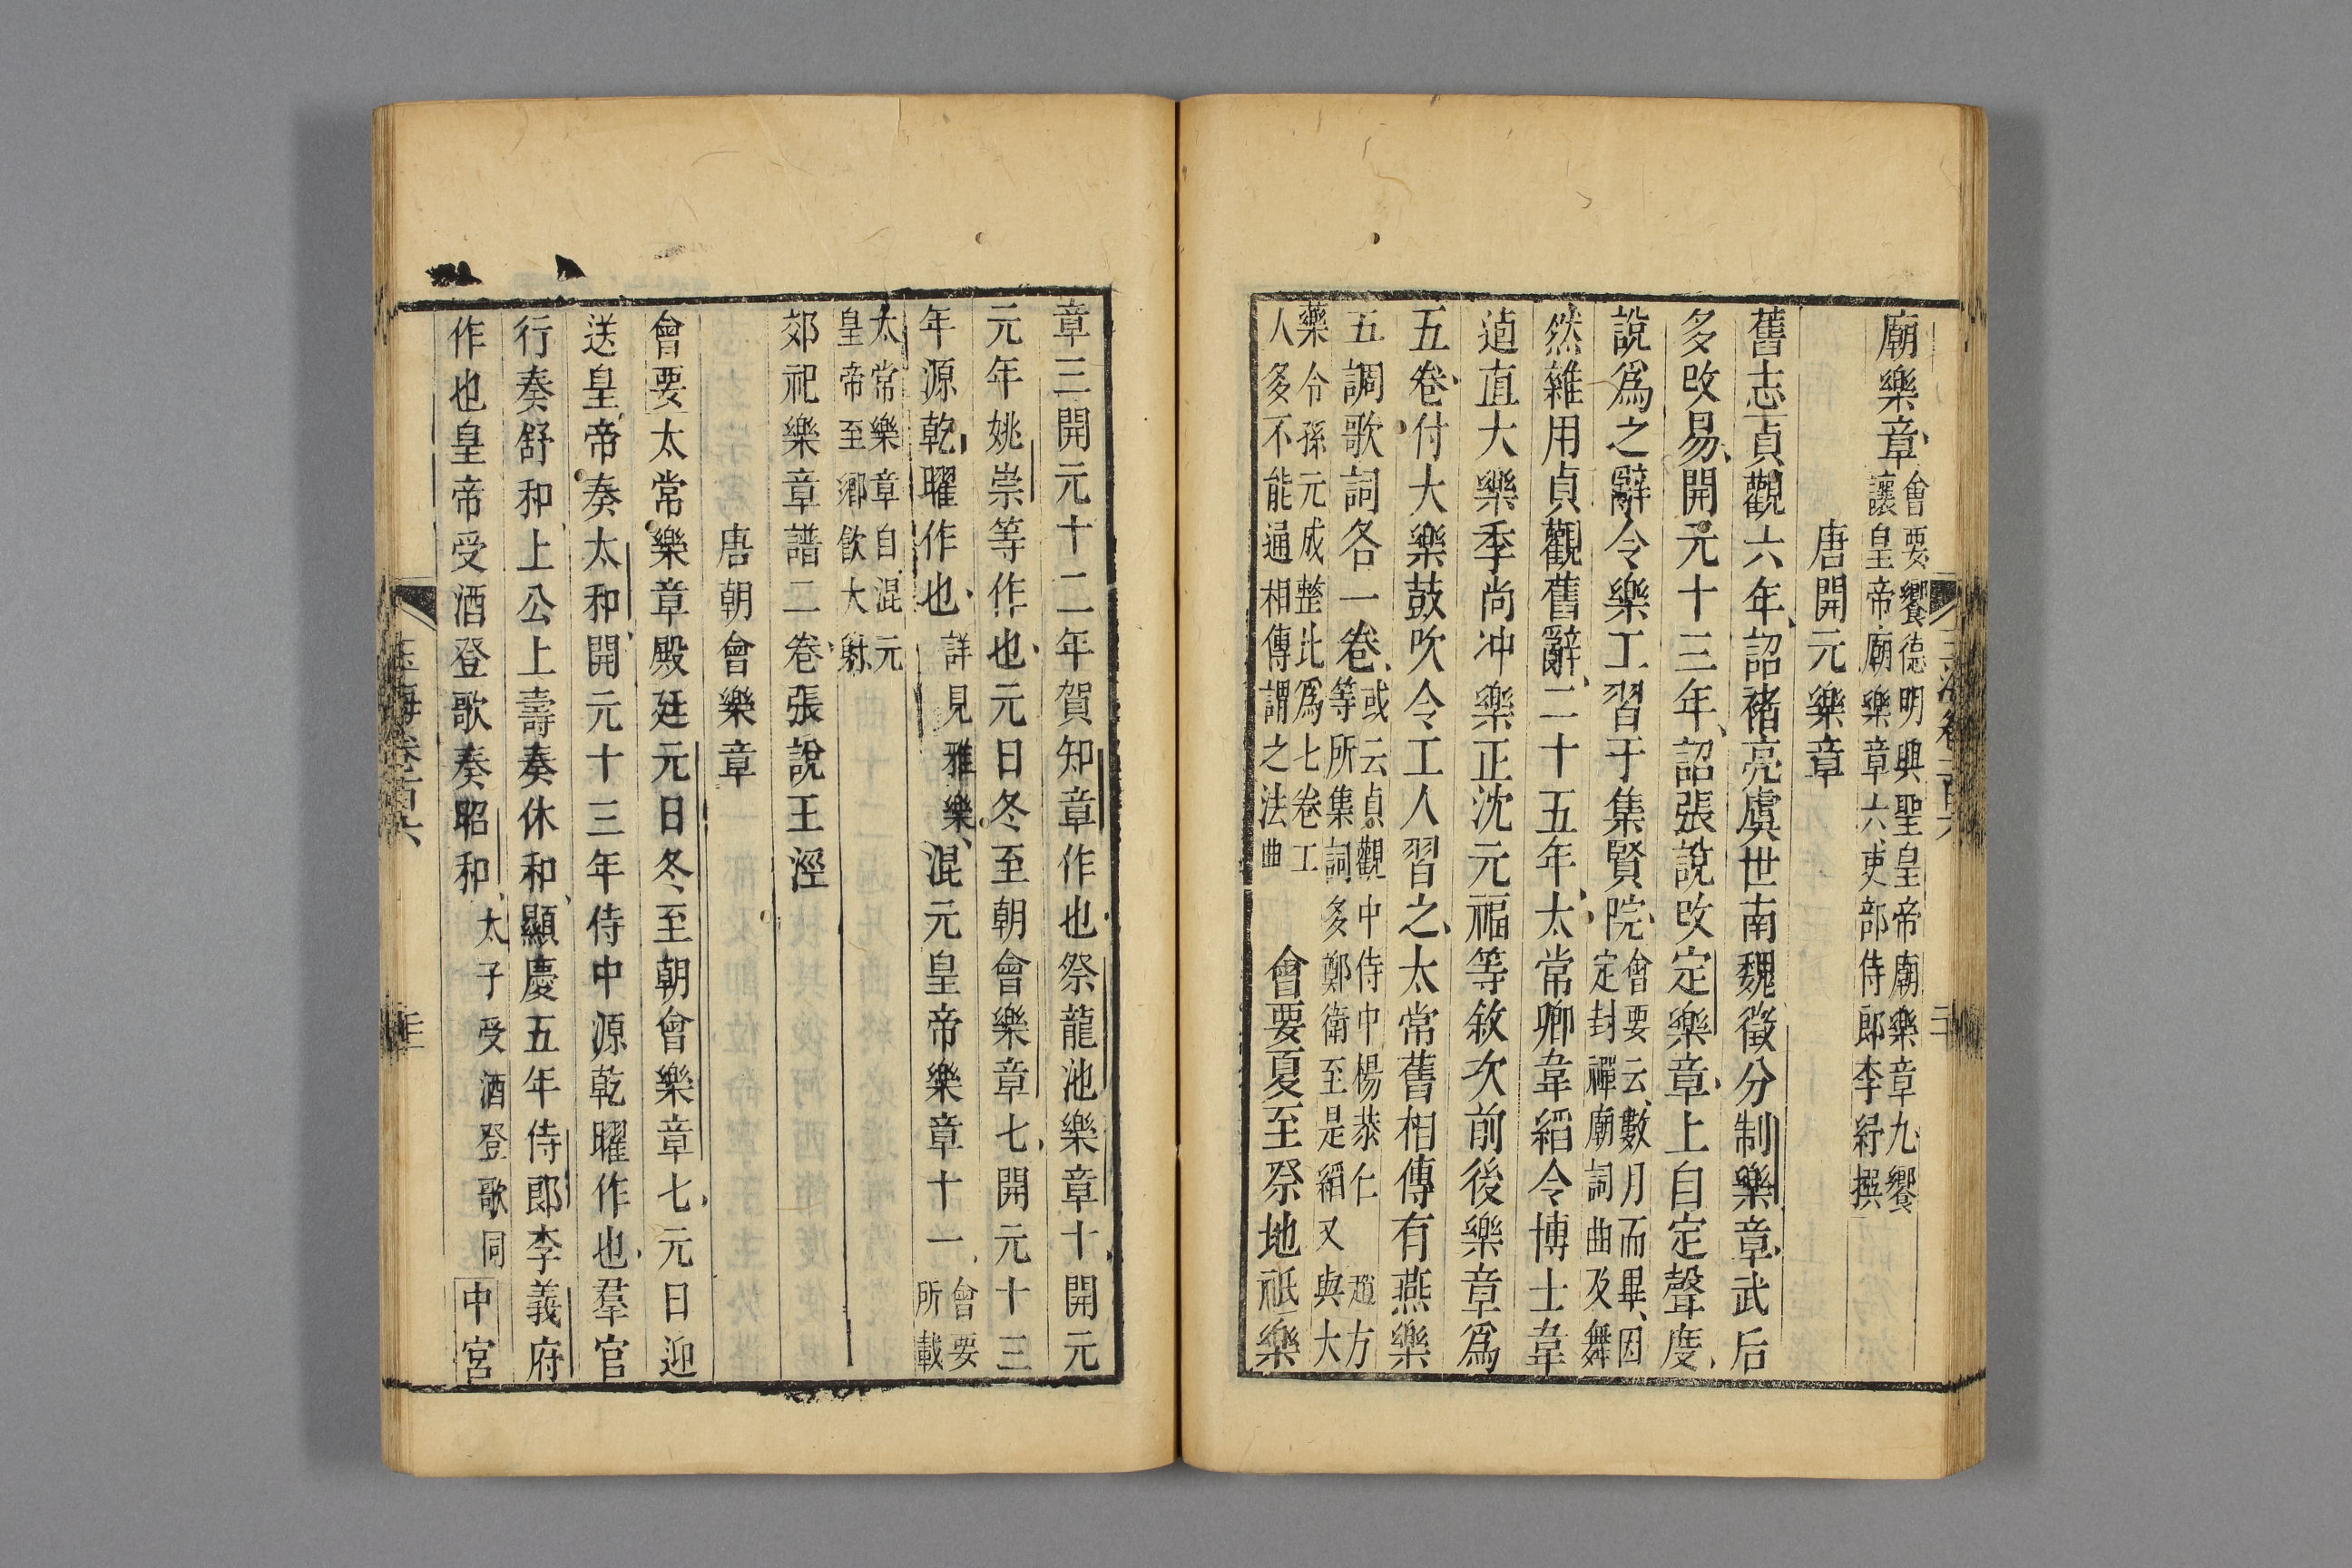 廟樂章會要饗德明興聖皇帝廟樂章九饗
讓皇帝廟樂章六吏部侍郎李紓撰
唐開元樂章
舊志貞觀六年詔褚亮虞世南魏徵分制樂章武后
多改易開元十三年詔張說改定樂章上自定聲度
說爲之辭令樂工習于集賢院會要云數月而畢因
定封禪廟詞曲及舞
然雜用貞觀舊辭二十五年太常卿韋縚令博士韋
逌直大樂季尚冲樂正沈元福等敘次前後樂章爲
五卷付大樂鼓吹令工人習之太常舊相傳有燕樂
五調歌詞各一卷或云貞觀中侍中楊恭仁趙方
等所集詞多鄭衛至是縚又與大
樂令孫元成整比爲七卷工
人多不能通相傳謂之法曲會要夏至祭地祇樂
章三開元十二年賀知章作也祭龍池樂章十開元
元年姚崇等作也元日冬至朝會樂章七開元十三
年源乾曜作也詳見雅樂混元皇帝樂章十一會要
所載
太常樂章自混元
皇帝至鄉飲大射
郊祀樂章譜二卷張說王涇
唐朝會樂章
會要太常樂章殿廷元日冬至朝會樂章七元日迎
送皇帝奏太和開元十三年侍中源乾曜作也羣官
行奏舒和上公上壽奏休和顯慶五年侍郎李義府
作也皇帝受酒登歌奏昭和太子受酒登歌同中宮
玉海卷百六